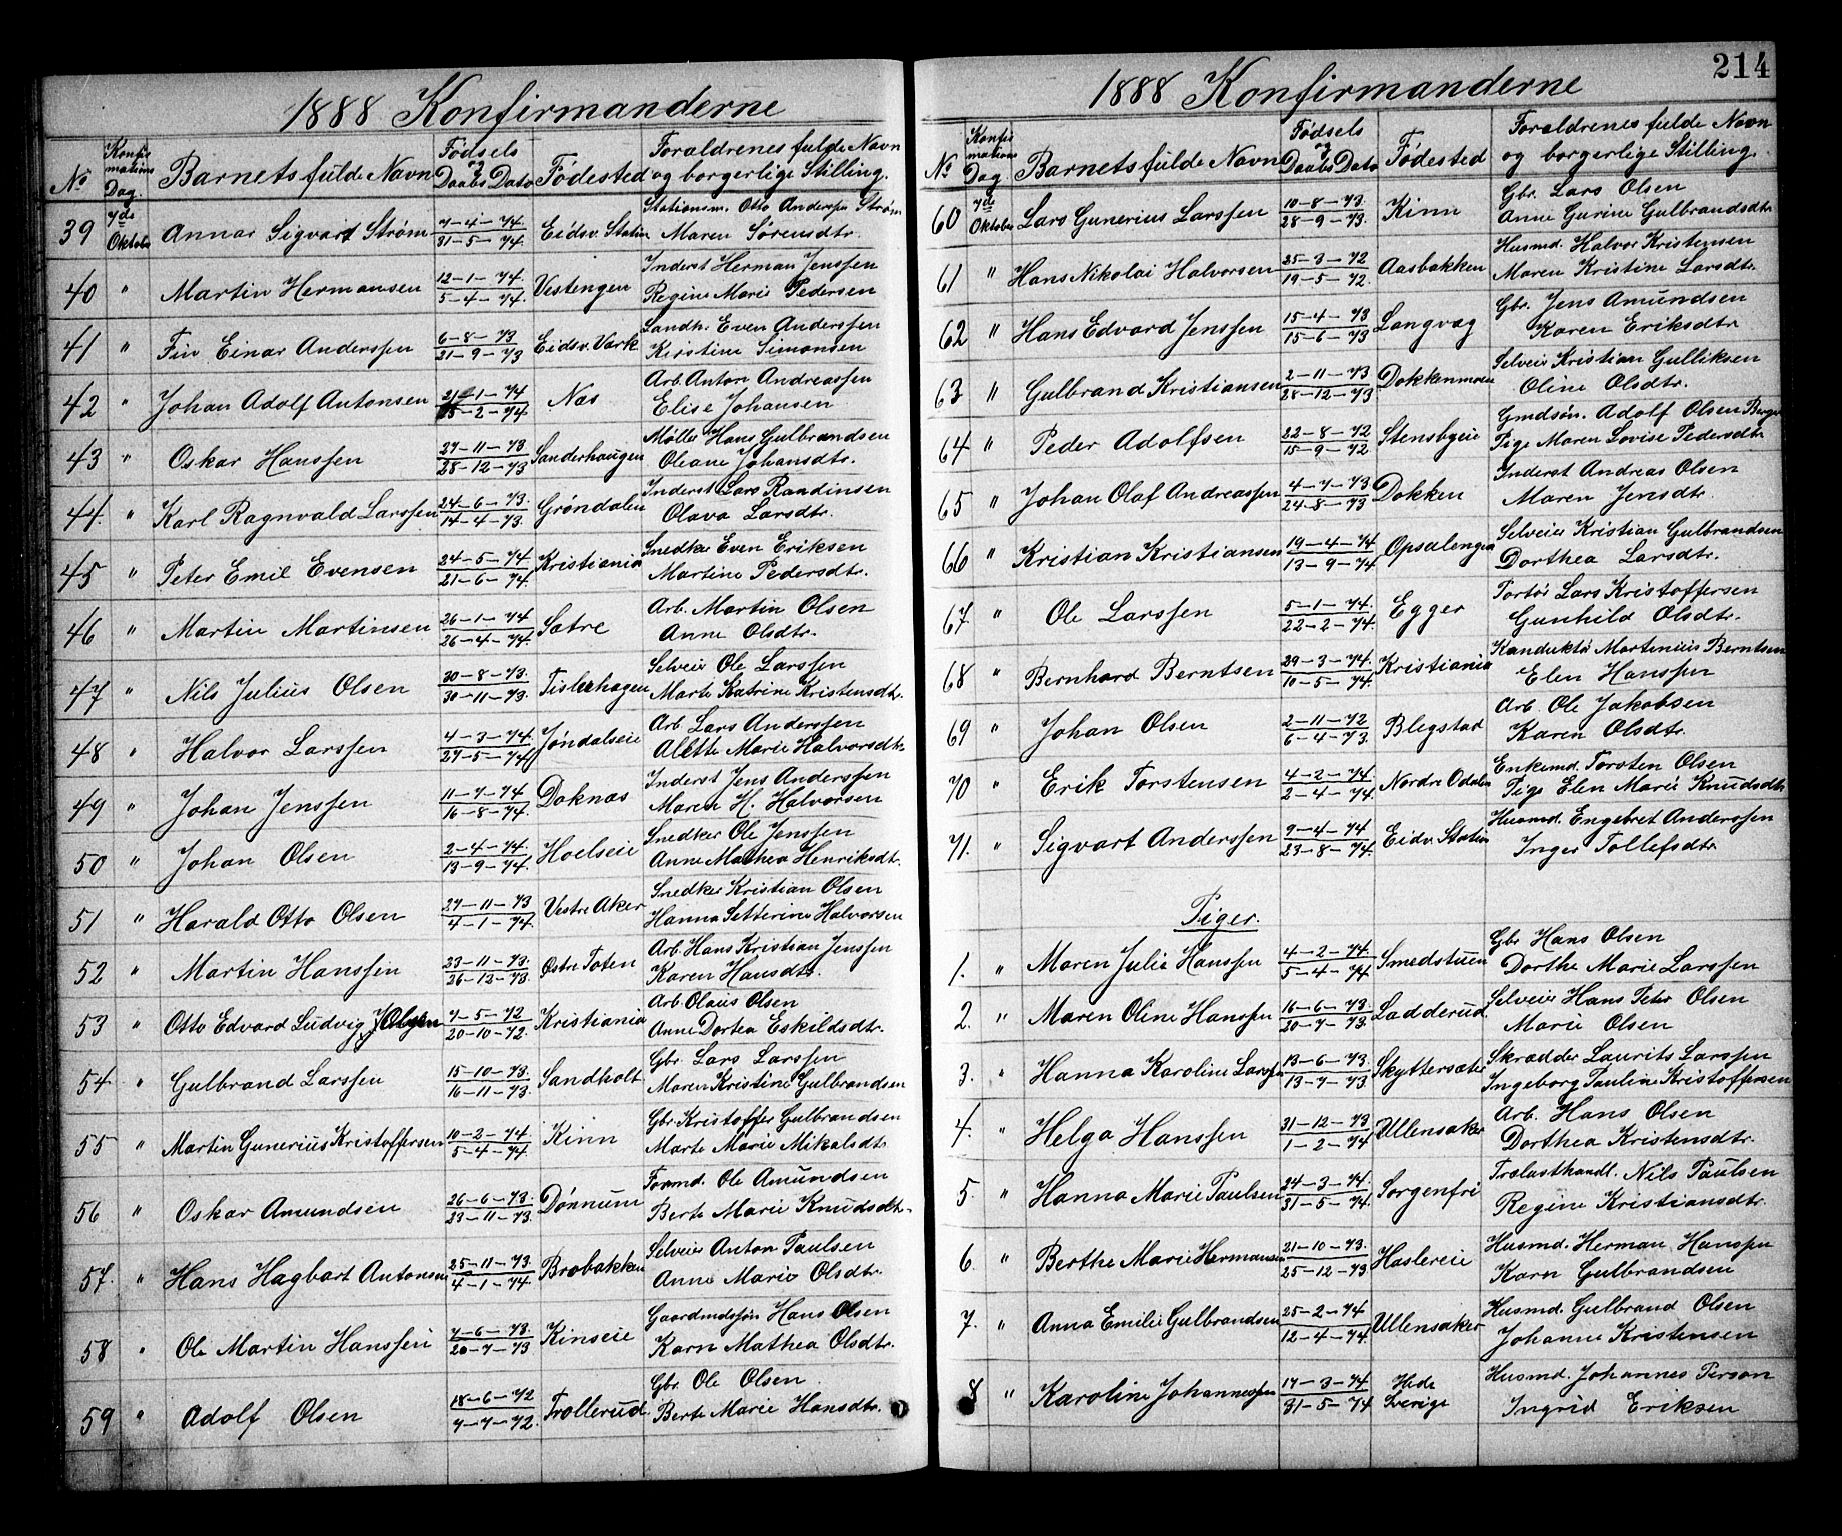 1888 Konfirmanderne
No Konfirmations Dag. Barnets fulde Navn Fødsels og Daabs Dato Fødested Forældrenes fulde Navn og borgerlige Stilling.
39 7de Oktober Annar Sigvart Strøm 7-4-74 31-5-74 Eidsv. Station Stationsm. Otto Anderssen Strøm Maren Sørensdtr.
40 " Martin Hermansen 12-1-74 5-4-74 Vestengen Inderst Herman Jenssen Regine Marie Pedersen
41 " Fin Einar Anderssen 6-8-73 21-9-73 Eidsv. Værk Landh. Even Anderssen Kirstine Simonsen
42 " Johan Adolf Antonsen 21-1-74 -2-74 Næs Arb. Anton Andreassen Elise Johansen
43 " Oskar Hanssen 27-11-73 28-12-73 Sanderhaugen Møller Hans Gulbrandsen Oleane Johansdtr.
44. " Karl Ragnvald Larssen 24-6-73. 14-4-73. Grøndalen Inderst Lars Randinsen Olava Larsdtr.
45 " Peter Emil Evensen 24-5-74 21-6-74. Kristiania Snedker Even Eriksen Martine Pedersdtr.
46 " Martin Martinsen 26-1-74 26-4-74. Sætre Arb. Martin Olsen Anne Olsdtr.
47 " Nils Julius Olsen 30-8-73. 30-11-73. Tislerhagen Selveier Ole Larssen Marte Katrine Kristensdtr.
48 " Halvor Larssen 4-3-74. 27-5-74. Jøndalseie Arb. Lars Anderssen Alette Marie Halvorsdtr.
49 " Johan Jenssen 11-7-74 16-8-74. Doknæs Inderst Jens Anderssen Maren H. Halvorsen
50 " Johan Olsen 2-4-74. 13-9-74. Hoelseie Snedker Ole Jenssen Anne Mathea Henriksdtr.
51 " Harald Otto Olsen 27-11-73 4-1-74. Vestre Aker Snedker Kristian Olsen Hanna Setterine Halvorsen
52 " Martin Hanssen 23-11-73. 26-12-73. Østre Toten Arb. Hans Kristian Jenssen Karen Hansdtr.
53 " Otto Edvard Ludvig Olsen 7-5-72 20-10-72. Kristiania Arb. Olaus Olsen Anne Dortea Eskildsdtr.
54. " Gulbrand Larssen 15-10-73. 16-11-73. Sandholt Gbr. Lars Larssen Maren Kristine Gulbrandsen
55 " Martin Gunerius Kristoffersen 10-2-74 5-4-74. Kinn Gbr. Kristoffer Gulbrandsen Marte Marie Mikalsdtr.
56 " Oskar Amundsen 26-6-73. 23-11-73. Dønnum Formd. Ole Amundsen Berte Marie Knudsdtr.
57. " Hans Hagbart Antonsen 25-11-73. 4-1-74. Brobakken Selveier Anton Paulsen Anne Marie Olsdtr.
58 " Ole Martin Hanssen 7-6-73. 20-7-73 Kinseie Gaardmdssøn Hans Olsen Karn Mathea Olsdtr.
59 " Adolf Olsen 18-6-72 7-7-72. Trollerud. Gbr. Ole Olsen. Berte Marie Hansdtr.
214
1888 Konfirmanderne
No Konfirmations Dag. Barnets fulde Navn Fødsels og Daabs Dato Fødested Forældrenes fulde Navn og borgerlige Stilling.
60 7de Oktober Lars Gunerius Larssen 10-8-73. 28-9-73. Kinn Gbr. Lars Olsen Anne Gurine Gulbrandsdtr.
61 " Hans Nikolai Halvorsen 25-3-72 19-5-72. Aasbakken Husmd. Halvor Kristensen Maren Kristine Larsdtr.
62 " Hans Edvard Jenssen 15-4-73 15-6-73 Langvag Gbr. Jens Amundsen Karen Eriksdtr.
63 " Gulbrand Kristiansen 2-11-73 28-12-73 Dokkenmoen Selveier Kristian Gulliksen Oline Olsdtr.
64 " Peder Adolfsen 22-8-72 15-9-72. Stensbyeie Gmdsøn. Adolf Olsen Berger Pige Maren Lovise Pedersdtr
65 " Johan Olaf Andreassen 4-7-73 24-8-73 Dokken Inderst Andreas Olsen Maren Jensdtr.
66 " Kristian Kristiansen 19-4-74 13-9-74 Opsalengen Selveier Kristian Gulbrandsen Dorthea Larsdtr.
67. " Ole Larssen 5-1-74. 22-2-74. Egger Lars Kristoffersen Gunhild Olsdtr.
68 " Bernhard Berntsen 29-3-74. 10-5-74. Kristiania Konduktør Martinius Berntsen Elen Hanssen
69 " Johan Olsen 2-11-72 6-4-73. Blegstad Arb. Ole Jakobsen Karen Olsdtr.
70 " Erik Torstensen 4-2-74 2-4-74. Nordre Odalen Enkemd. Torsten Olsen Pige Elen Marie Knudsdtr
71. " Sigvart Anderssen 9-4-74 23-8-74. Eidsv. Station Husmd. Engebret Anderssen Inger Tollefsdtr.
Piger.
1. " Maren Julie Hanssen 4-2-74. 5-4-74 Smedstuen Gbr Hans Olsen Dorthe Marie Larssen
2. " Maren Oline Hanssen 16-6-73. 20-7-73. Ladderud. Selveier Hans Peter Olsen Marie Olsen
3. " Hanna Karoline Larssen 13-6-73. 13-7-73 Skyttersæter Skrædder Laurits Larssen Ingeborg Pauline Kristoffersen
4. " Helga Hanssen 31-12-73 1-2-74 Ullensaker Arb. Hans Olsen Dorthea Kristensdtr.
5. " Hanna Marie Paulsen 24-3-74. 31-5-74. Sorgenfri Trælasthandl. Nils Paulsen Regine Kristiansdtr.
6. " Berthe Marie Hermansen 21-10-73. 25-12-73 Haslereie Husmd. Herman Hanssen Karn Gulbrandsen
7. " Anna Emilie Gulbrandsen 25-2-74 12-4-74. Ullensaker Husmd. Gulbrand Olsen Johanne Kristensen
8 " Karoline Johannessen 17-3-74 31-5-74 Hede Sverige Husmd. Johannes Person Ingrid Eriksen